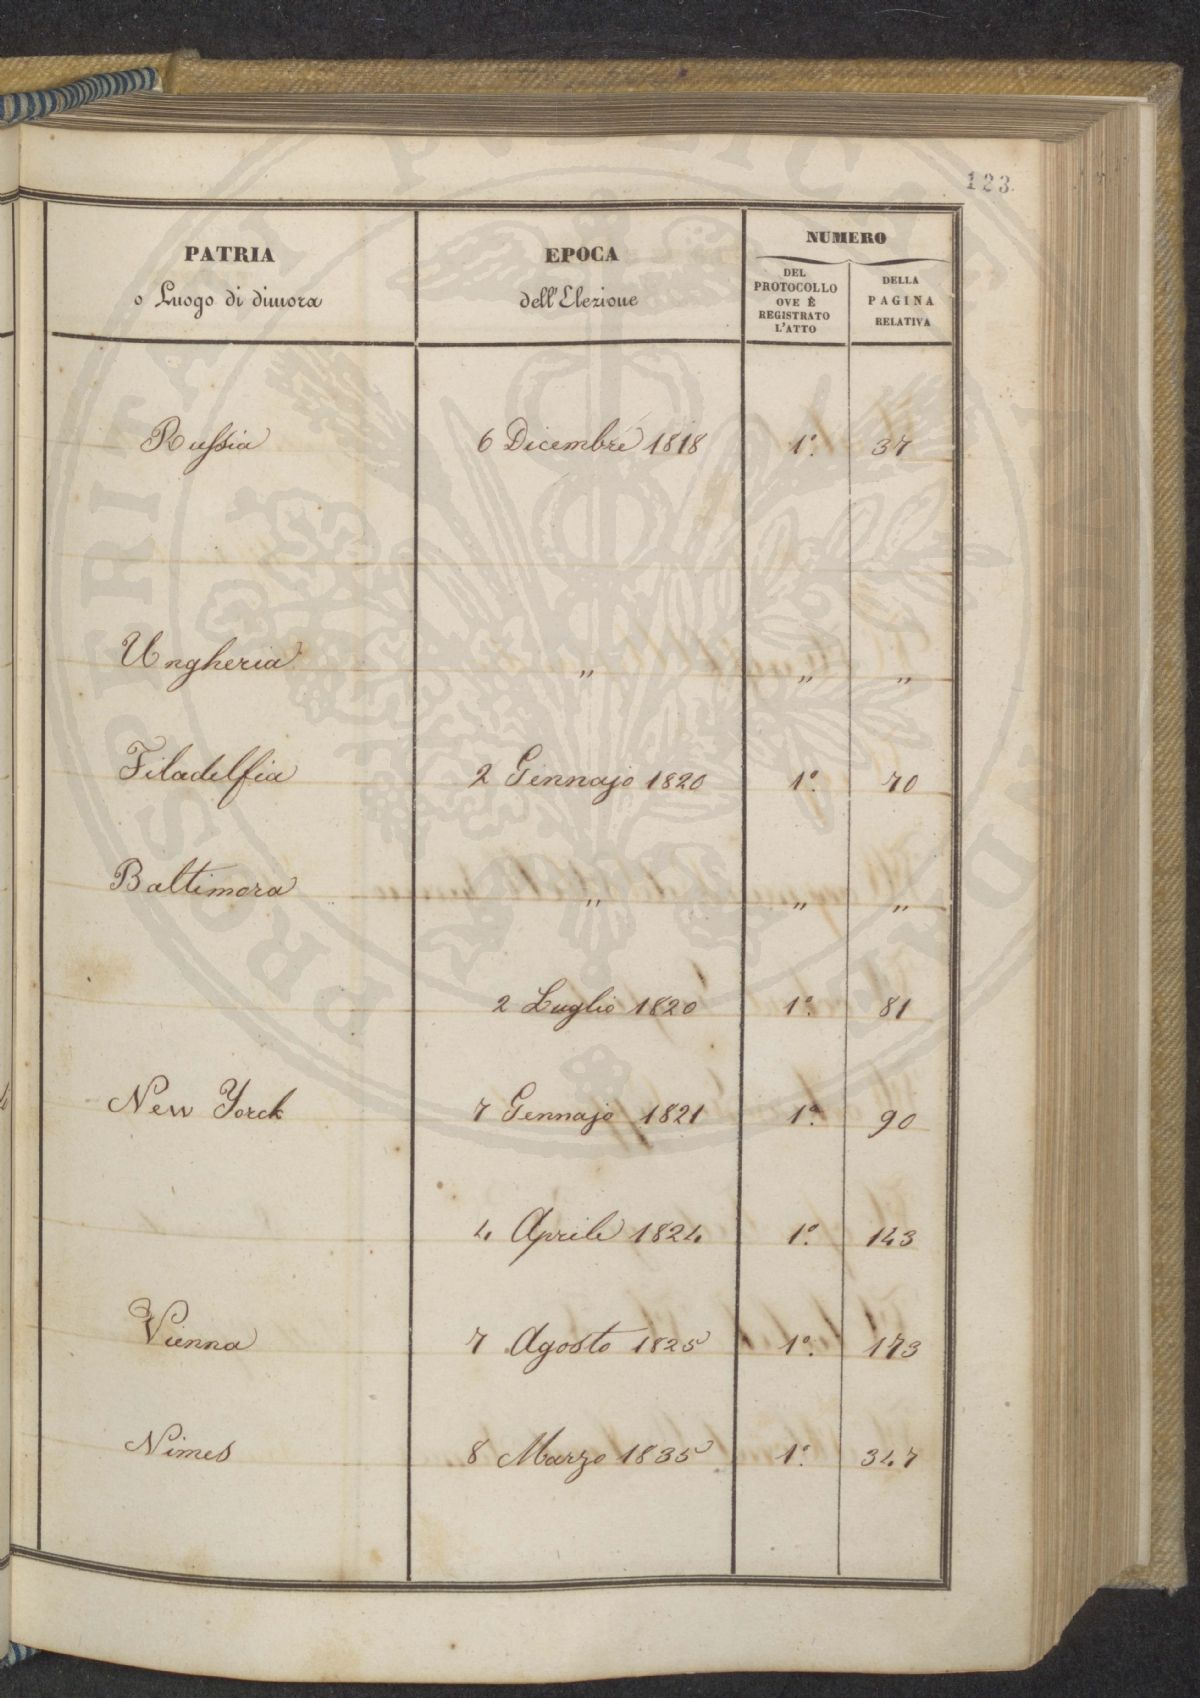 123.
PATRIA
o Luogo di dimora
EPOCA
dell'Elezione
NUMERO
DEL
PROTOCOLLO
OVE È
REGISTRATO
L'ATTO
DELLA
PAGINA
RELATIVA
Russia 6 Dicembre 1818 1º. 37
Ungheria " " "
Filadelfia 2 Gennajo 1820 1º. 70
Baltimora " " "
2 Luglio 1820 1º. 81
New Yorck 7 Gennajo 1821 1º. 90
4 Aprile 1824 1º. 143
Vienna 7 Agosto 1825 1º. 173
Nimes 8 Marzo 1835 1º. 347